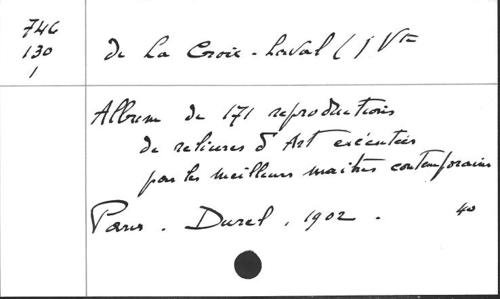 746
130
1
de La Croix-Laval ( ) Vte
Album de 171 reproductions
de reliures d'Art exécutées
par les meilleurs maitres contemporains
Paris. Durel. 1902. 4o